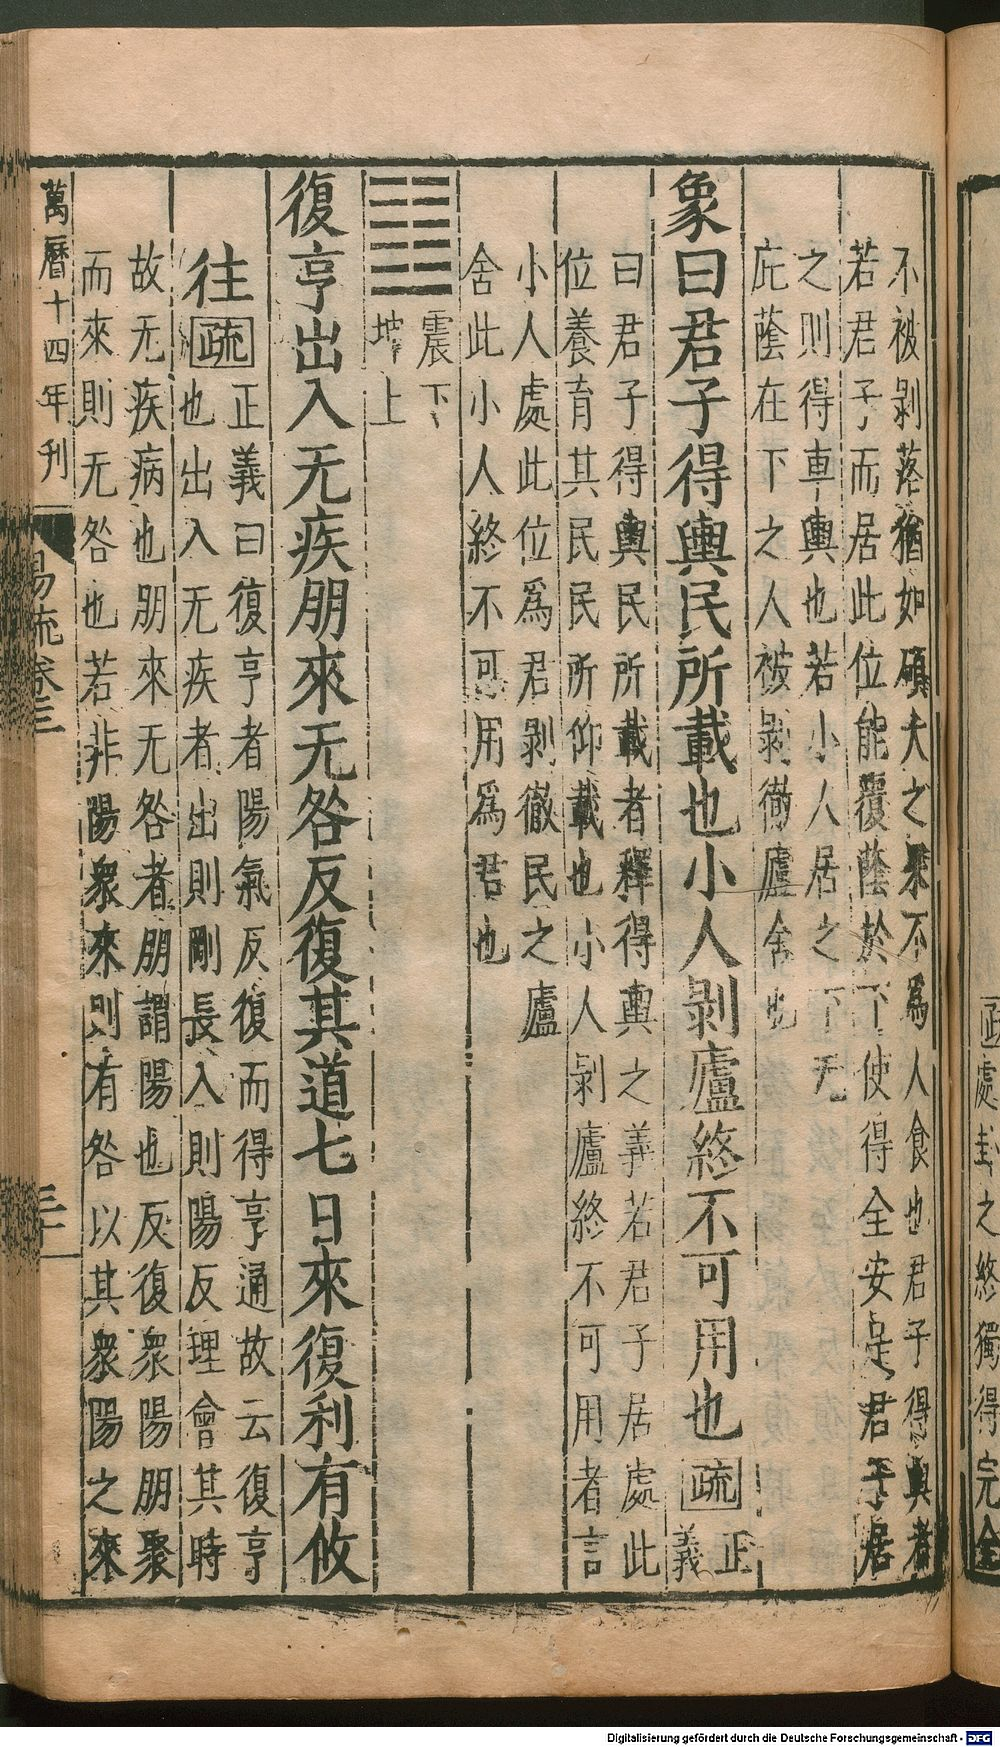 不被剥落猶如碩大之菓不爲人食也君子得輿者
若君子而居此位能覆蔭於下使得全安是君子居
之則得車輿也若小人居之下无
庇蔭在下之人被剥徹廬舍也
象曰君子得輿民所載也小人剥廬終不可用也疏正
義
曰君子得輿民所載者釋得輿之義若君子居處此
位養育其民民所仰載也小人剥廬終不可用者言
小人處此位爲君剥徹民之廬
舍此小人終不可用爲君也
震下
坤上
復亨出入无疾朋來无咎反復其道七日來復利有攸
往疏
正義曰復亨者陽氣反復而得亨通故云復亨
也出入无疾者出則剛長入則陽反理會其時
故无疾病也朋來无咎者朋謂陽也反復衆陽朋聚
而來則无咎也若非陽衆來則有咎以其衆陽之來
萬曆十四年刊
易疏卷三
疏處卦之終獨得完全
Digitalisierung gefördert durch die Deutsche Forschungsgemeinschaft - DFG